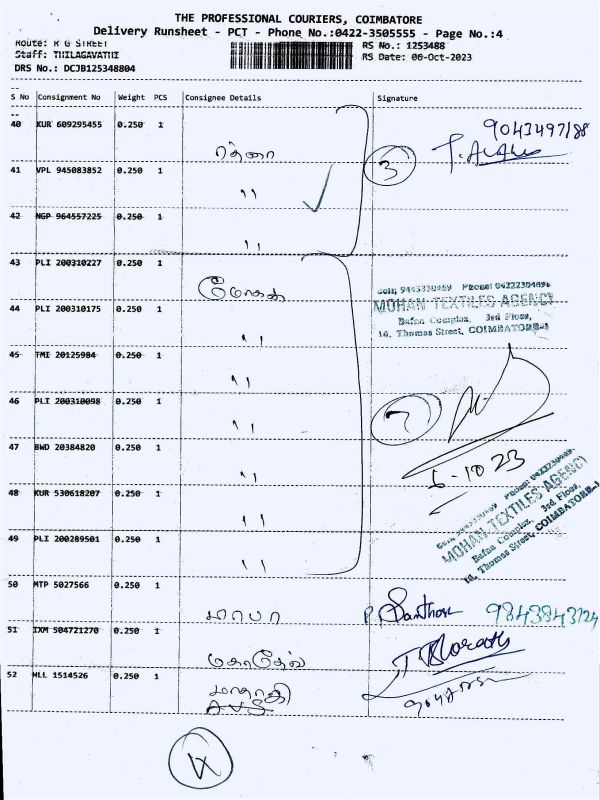 THE PROFESSIONAL COURIERS, COIMBATORE
Delivery Runsheet - PCT - Phone No.:0422-3505555 - Page No.:4
Route: R G STREET
Staff: THILAGAVATHI
DRS No.: DCJB125348804
RS No.: 1253488
RS Date: 06-Oct-2023
S No Consignment No Weight PCS Consignee Details Signature
40 KUR 609295455 0.250 1
9043497188
3
41 VPL 945083852 0.250 1 "
42 NGP 964557225 0.250 1 "
43 PLI 200310227 0.250 1 மோகன்
Cell; 9443330489 Phone: 04222304696
MOHAN TEXTILES AGENCY
Bafna Complex, 3rd Floor,
14, Thomas Street, COIMBATORE-1
44 PLI 200310175 0.250 1 "
45 TMI 20125984 0.250 1 "
46 PLI 200310098 0.250 1 "
7
6-10 23
47 BWD 20384820 0.250 1 "
48 KUR 530618207 0.250 1 "
MOHAN TEXTILES AGENCY
Bafna Complex, 3rd Floor,
14, Thomas Street, COIMBATORE-1
49 PLI 200289501 0.250 1 "
50 MTP 5027566 0.250 1 மாபா P. Santhosh 9843843124
51 IXM 504721270 0.250 1 மகாதேவ் T. Bharath
52 HLL 1514526 0.250 1
AVS